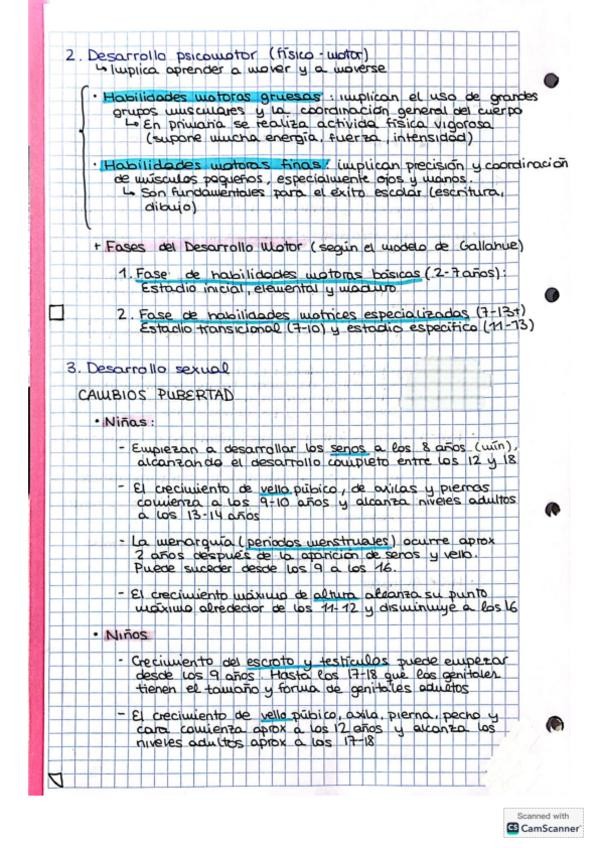 2. Desarrollo psicomotor (físico-motor)
↳ Implica aprender a mover y a moverse
• Habilidades motoras gruesas: implican el uso de grandes
grupos musculares y la coordinación general del cuerpo
↳ En primaria se realiza activida física vigorosa
(supone mucha energía, fuerza, intensidad)
• Habilidades motoras finas: implican precisión y coordinación
de músculos pequeños, especialmente ojos y manos.
↳ Son fundamentales para el éxito escolar (escritura,
dibujo)
+ Fases del Desarrollo Motor (según el modelo de Gallahue)
1. Fase de habilidades motoras básicas (2-7 años):
Estadio inicial, elemental y maduro
2. Fase de habilidades motrices especializadas (7-13+)
Estadio transicional (7-10) y estadio específico (11-13)
3. Desarrollo sexual
CAMBIOS PUBERTAD
• Niñas:
- Empiezan a desarrollar los senos a los 8 años (mín),
alcanzando el desarrollo completo entre los 12 y 18
- El crecimiento de vello púbico, de axilas y piernas
comienza a los 9-10 años y alcanza niveles adultos
a los 13-14 años
- La menarquía (periodos menstruales) ocurre aprox
2 años después de la aparición de senos y vello.
Puede suceder desde los 9 a los 16.
- El crecimiento máximo de altura alcanza su punto
máximo alrededor de los 11-12 y disminuye a los 16
• Niños
- Crecimiento del escroto y testículos puede empezar
desde los 9 años. Hasta los 17-18 que los genitales
tienen el tamaño y forma de genitales adultos
- El crecimiento de vello púbico, axila, pierna, pecho y
cara comienza aprox a los 12 años y alcanza los
niveles adultos aprox a los 17-18
Scanned with
CS CamScanner